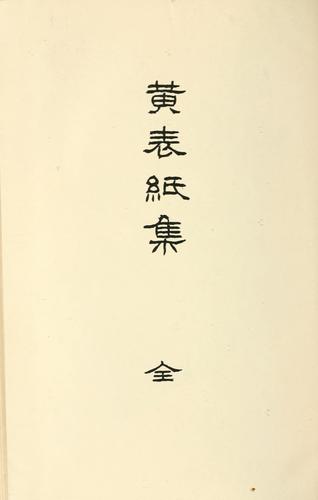 黄表紙集 全